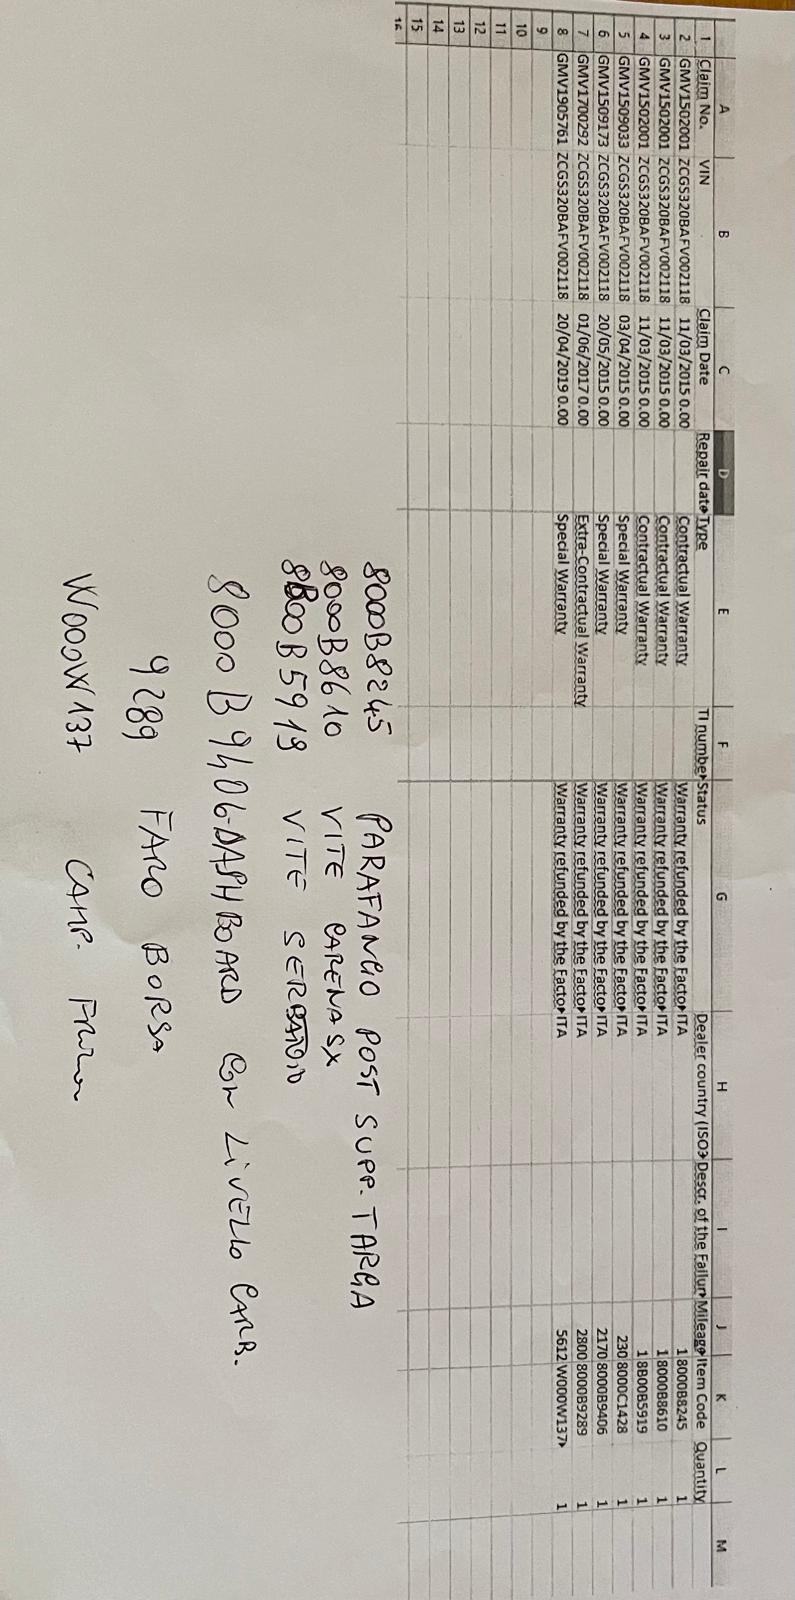 A B C D E F G H I J K L M
1 Claim No. VIN Claim Date Repair dat Type TI numbe Status Dealer country (ISO3 Descr. of the Failur Mileag Item Code Quantity
2 GMV1502001 ZCGS320BAFV002118 11/03/2015 0.00 Contractual Warranty Warranty refunded by the Facto ITA 1 8000B8245 1
3 GMV1502001 ZCGS320BAFV002118 11/03/2015 0.00 Contractual Warranty Warranty refunded by the Facto ITA 1 8000B8610 1
4 GMV1502001 ZCGS320BAFV002118 11/03/2015 0.00 Contractual Warranty Warranty refunded by the Facto ITA 1 8B00B5919 1
5 GMV1509033 ZCGS320BAFV002118 03/04/2015 0.00 Special Warranty Warranty refunded by the Facto ITA 230 8000C1428 1
6 GMV1509173 ZCGS320BAFV002118 20/05/2015 0.00 Special Warranty Warranty refunded by the Facto ITA 2170 8000B9406 1
7 GMV1700292 ZCGS320BAFV002118 01/06/2017 0.00 Extra-Contractual Warranty Warranty refunded by the Facto ITA 2800 8000B9289 1
8 GMV1905761 ZCGS320BAFV002118 20/04/2019 0.00 Special Warranty Warranty refunded by the Facto ITA 5612 W000W137 1
9
10
11
12
13
14
15
16
8000B8245 PARAFANGO POST SUPP. TARGA
8000B8610 VITE CARENA SX
8B00B5919 VITE SERBATOIO
8000B9406-DASHBOARD CON LIVELLO CARB.
9289 FARO BORSA
W000W137 CAMP.